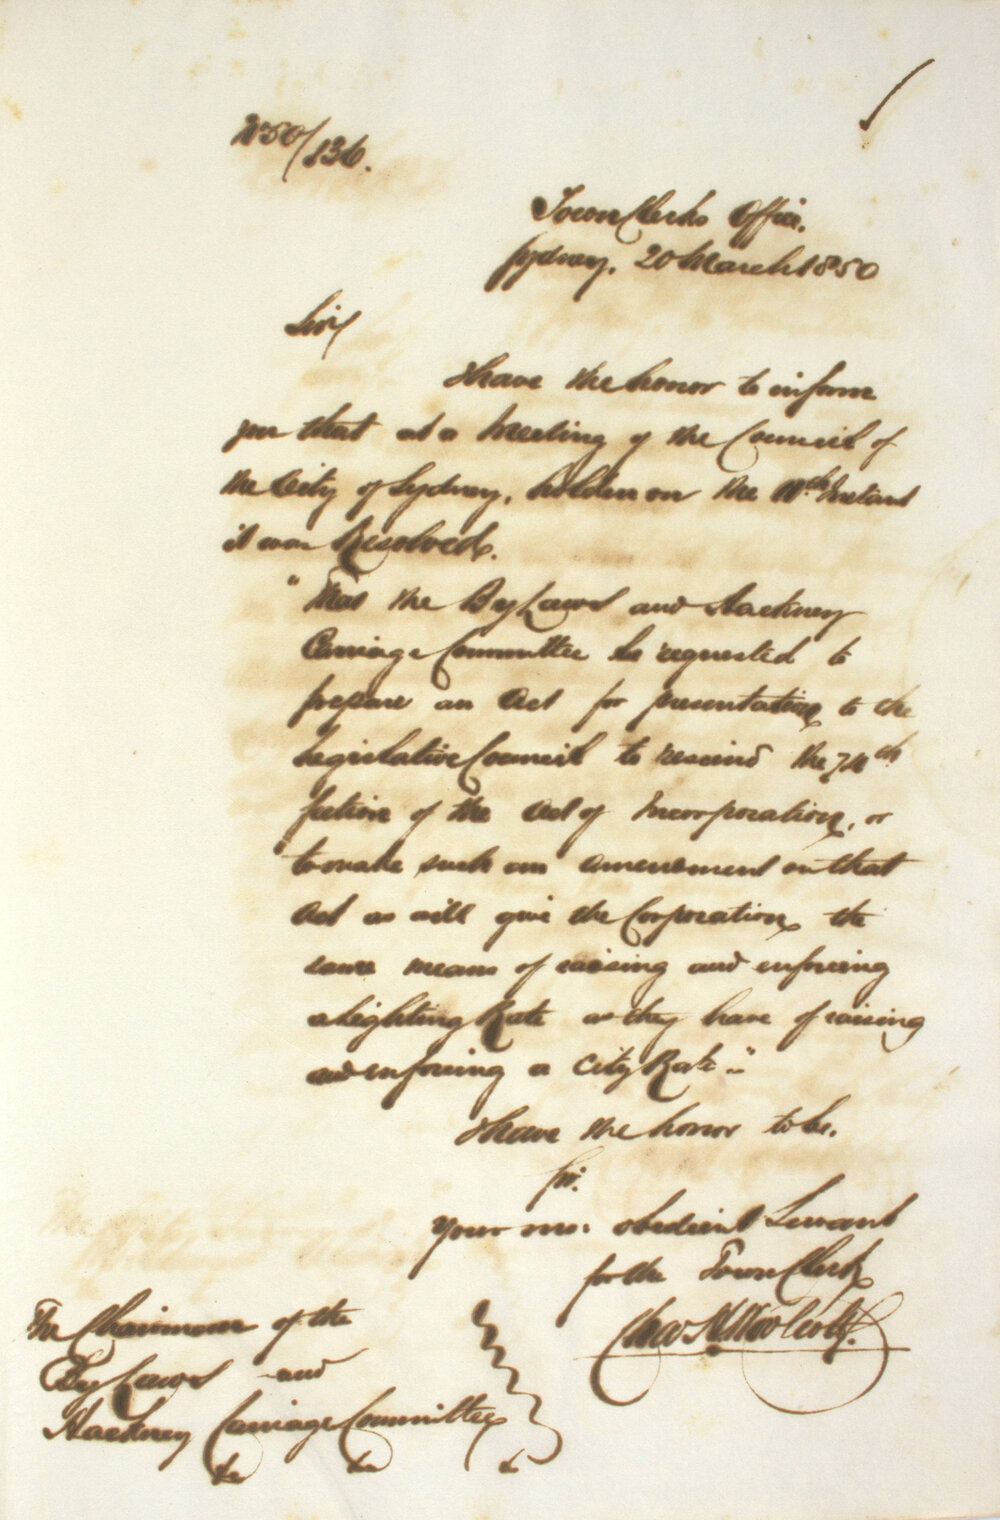 No 50/136.
Town Clerks Office.
Sydney, 20 March 1850
Sir/
I have the honor to inform
you that at a Meeting of the Council of
the City of Sydney, holden on the 11th Instant
it was Resolved.
"That the By Laws and Hackney
Carriage Committee be requested to
prepare an Act for presentation to the
Legislative Council to rescind the 74th
Section of the Act of Incorporation, or
to make such an amendment on that
Act as will give the Corporation the
same means of raising and enforcing
a Lighting Rate as they have of raising
and enforcing a City Rate."
I have the honor to be.
Sir.
Your mo: obedient Servant
for the Town Clerk
Chas H Woolcott.
The Chairman of the
By Laws and
Hackney Carriage Committee
&c &c &c